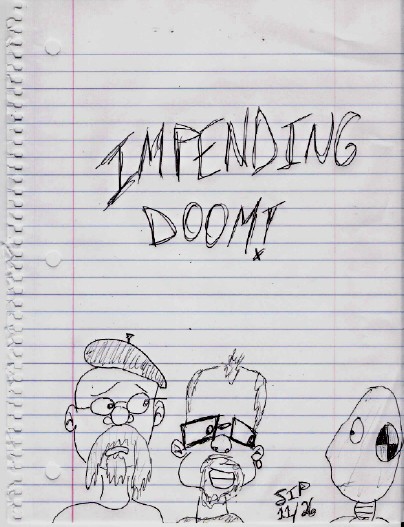 IMPENDING
DOOM!
SIP
11/26